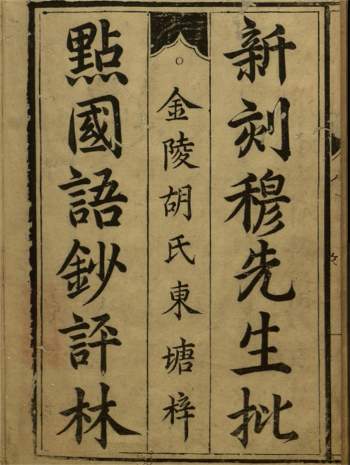 新刻穆先生批
金陵胡氏東塘梓
點國語鈔評林